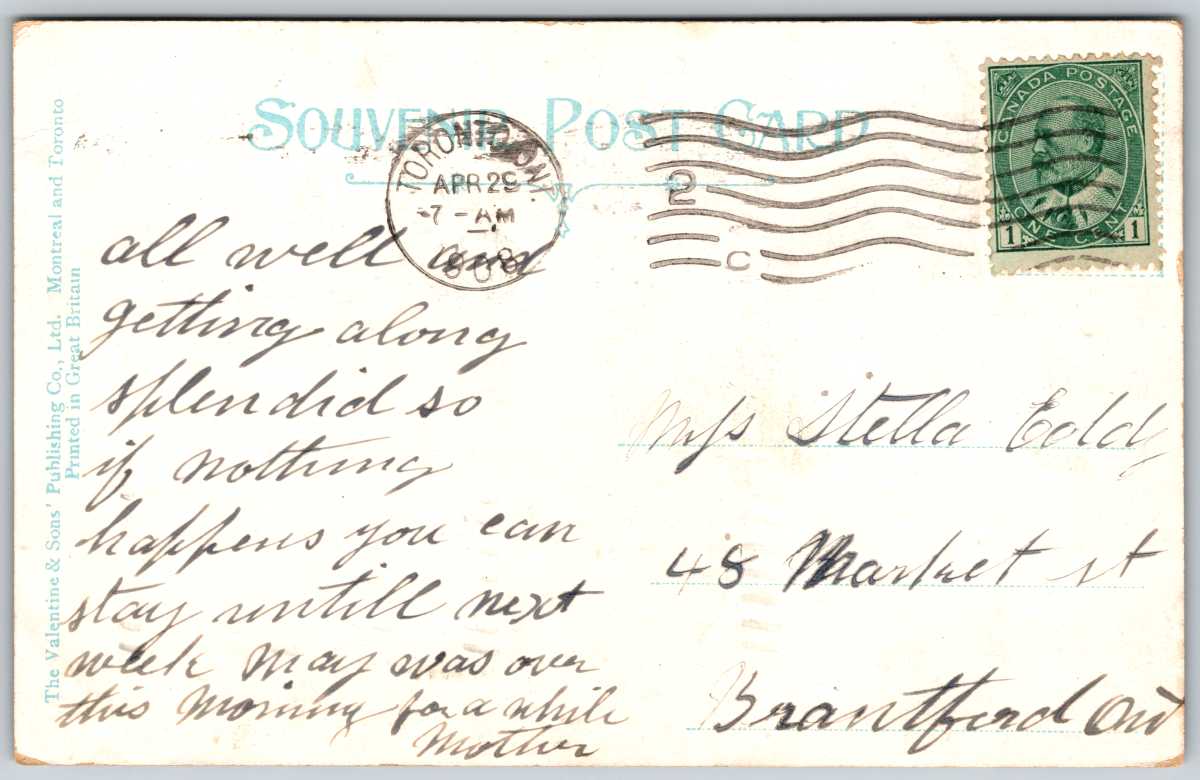 SOUVENIR POST CARD
TORONTO, ONT.
APR 29
7 - AM
1908
2
C
CANADA POSTAGE
ONE CENT
1 1
all well and
getting along
splendid so
if nothing
happens you can
stay untill next
week May was over
this Morning for a while
Mother
Miss Stella Eddy
48 Market st
Brantford Ont
The Valentine & Sons' Publishing Co., Ltd. Montreal and Toronto
Printed in Great Britain